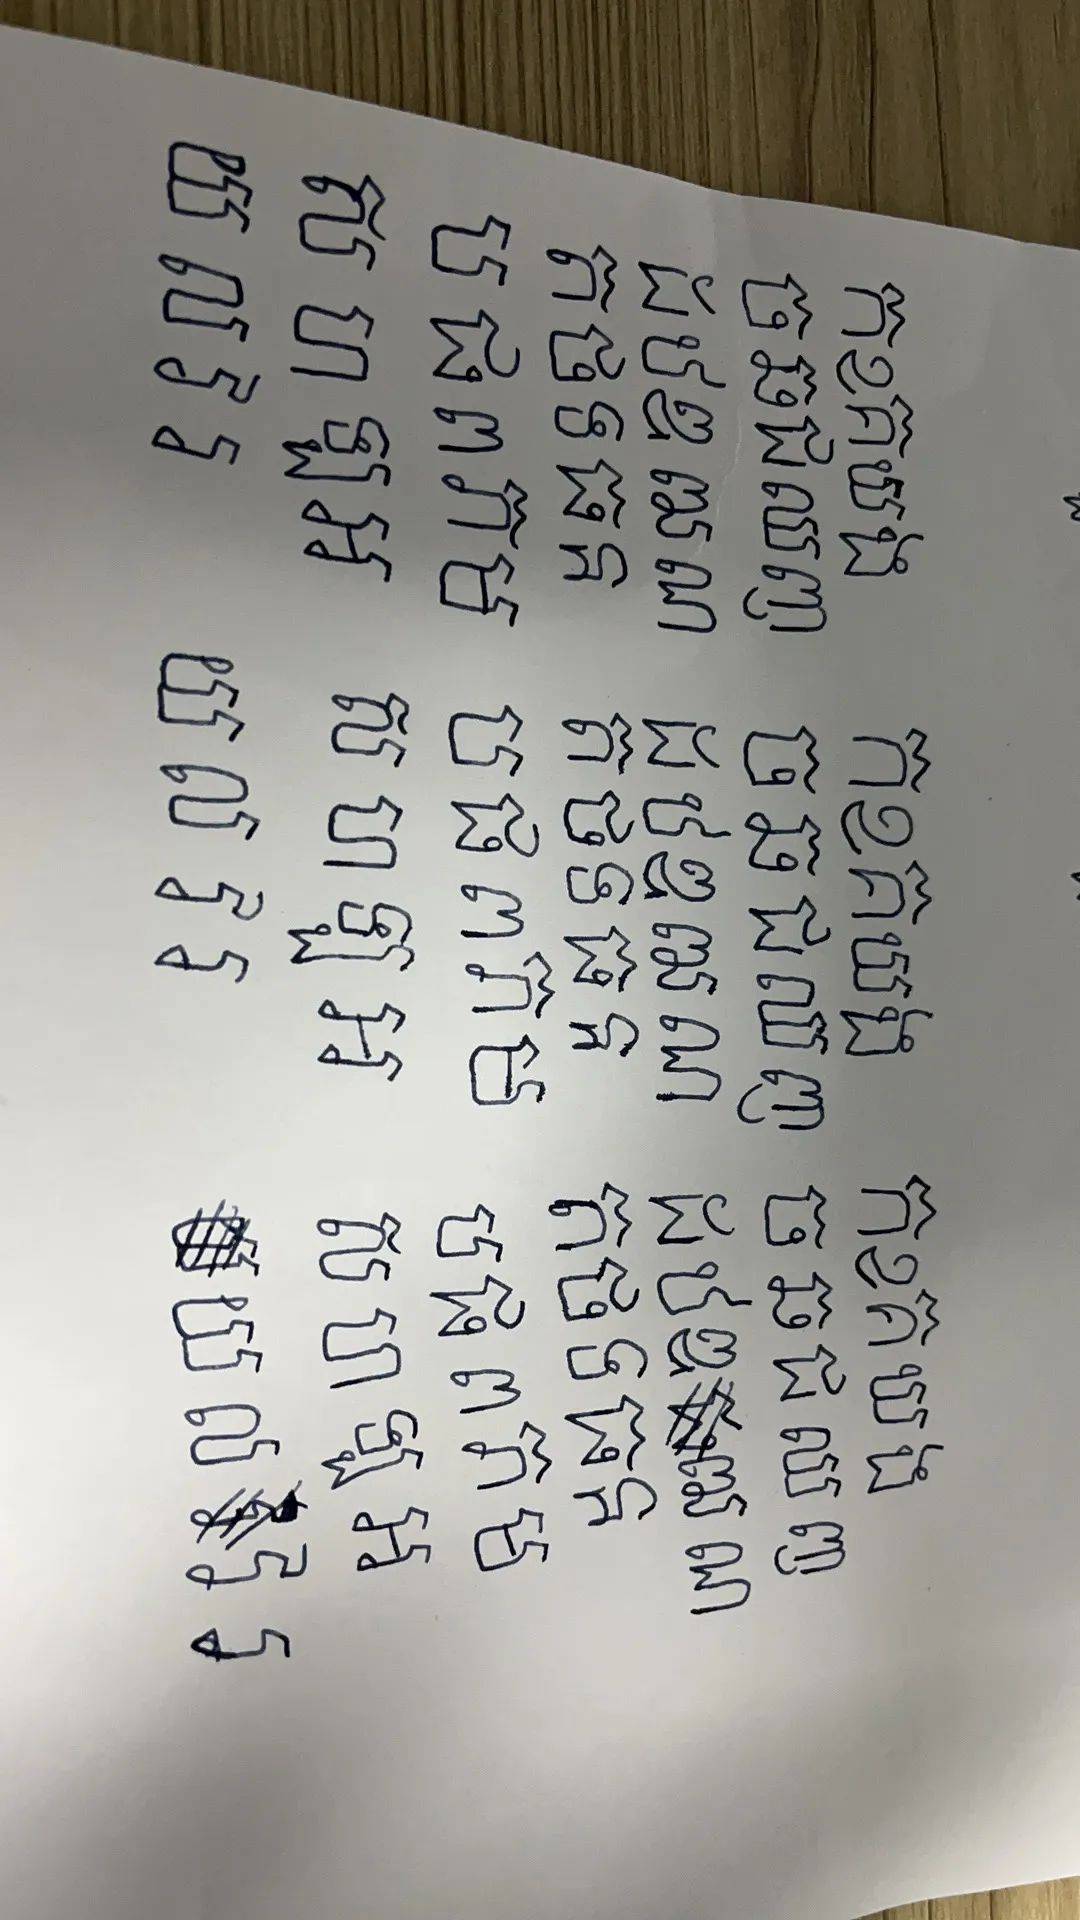 ក ខ គ ឃ ង ក ខ គ ឃ ង ក ខ គ ឃ ង
ច ឆ ជ ឈ ញ ច ឆ ជ ឈ ញ ច ឆ ជ ឈ ញ
ដ ឋ ឌ ឍ ណ ដ ឋ ឌ ឍ ណ ដ ឋ ឌ ឍ ណ
ត ថ ទ ធ ន ត ថ ទ ធ ន ត ថ ទ ធ ន
ប ផ ព ភ ម ប ផ ព ភ ម ប ផ ព ភ ម
ស ហ ឡ អ ស ហ ឡ អ ស ហ ឡ អ
យ ល រ វ យ ល រ វ យ ល រ វ